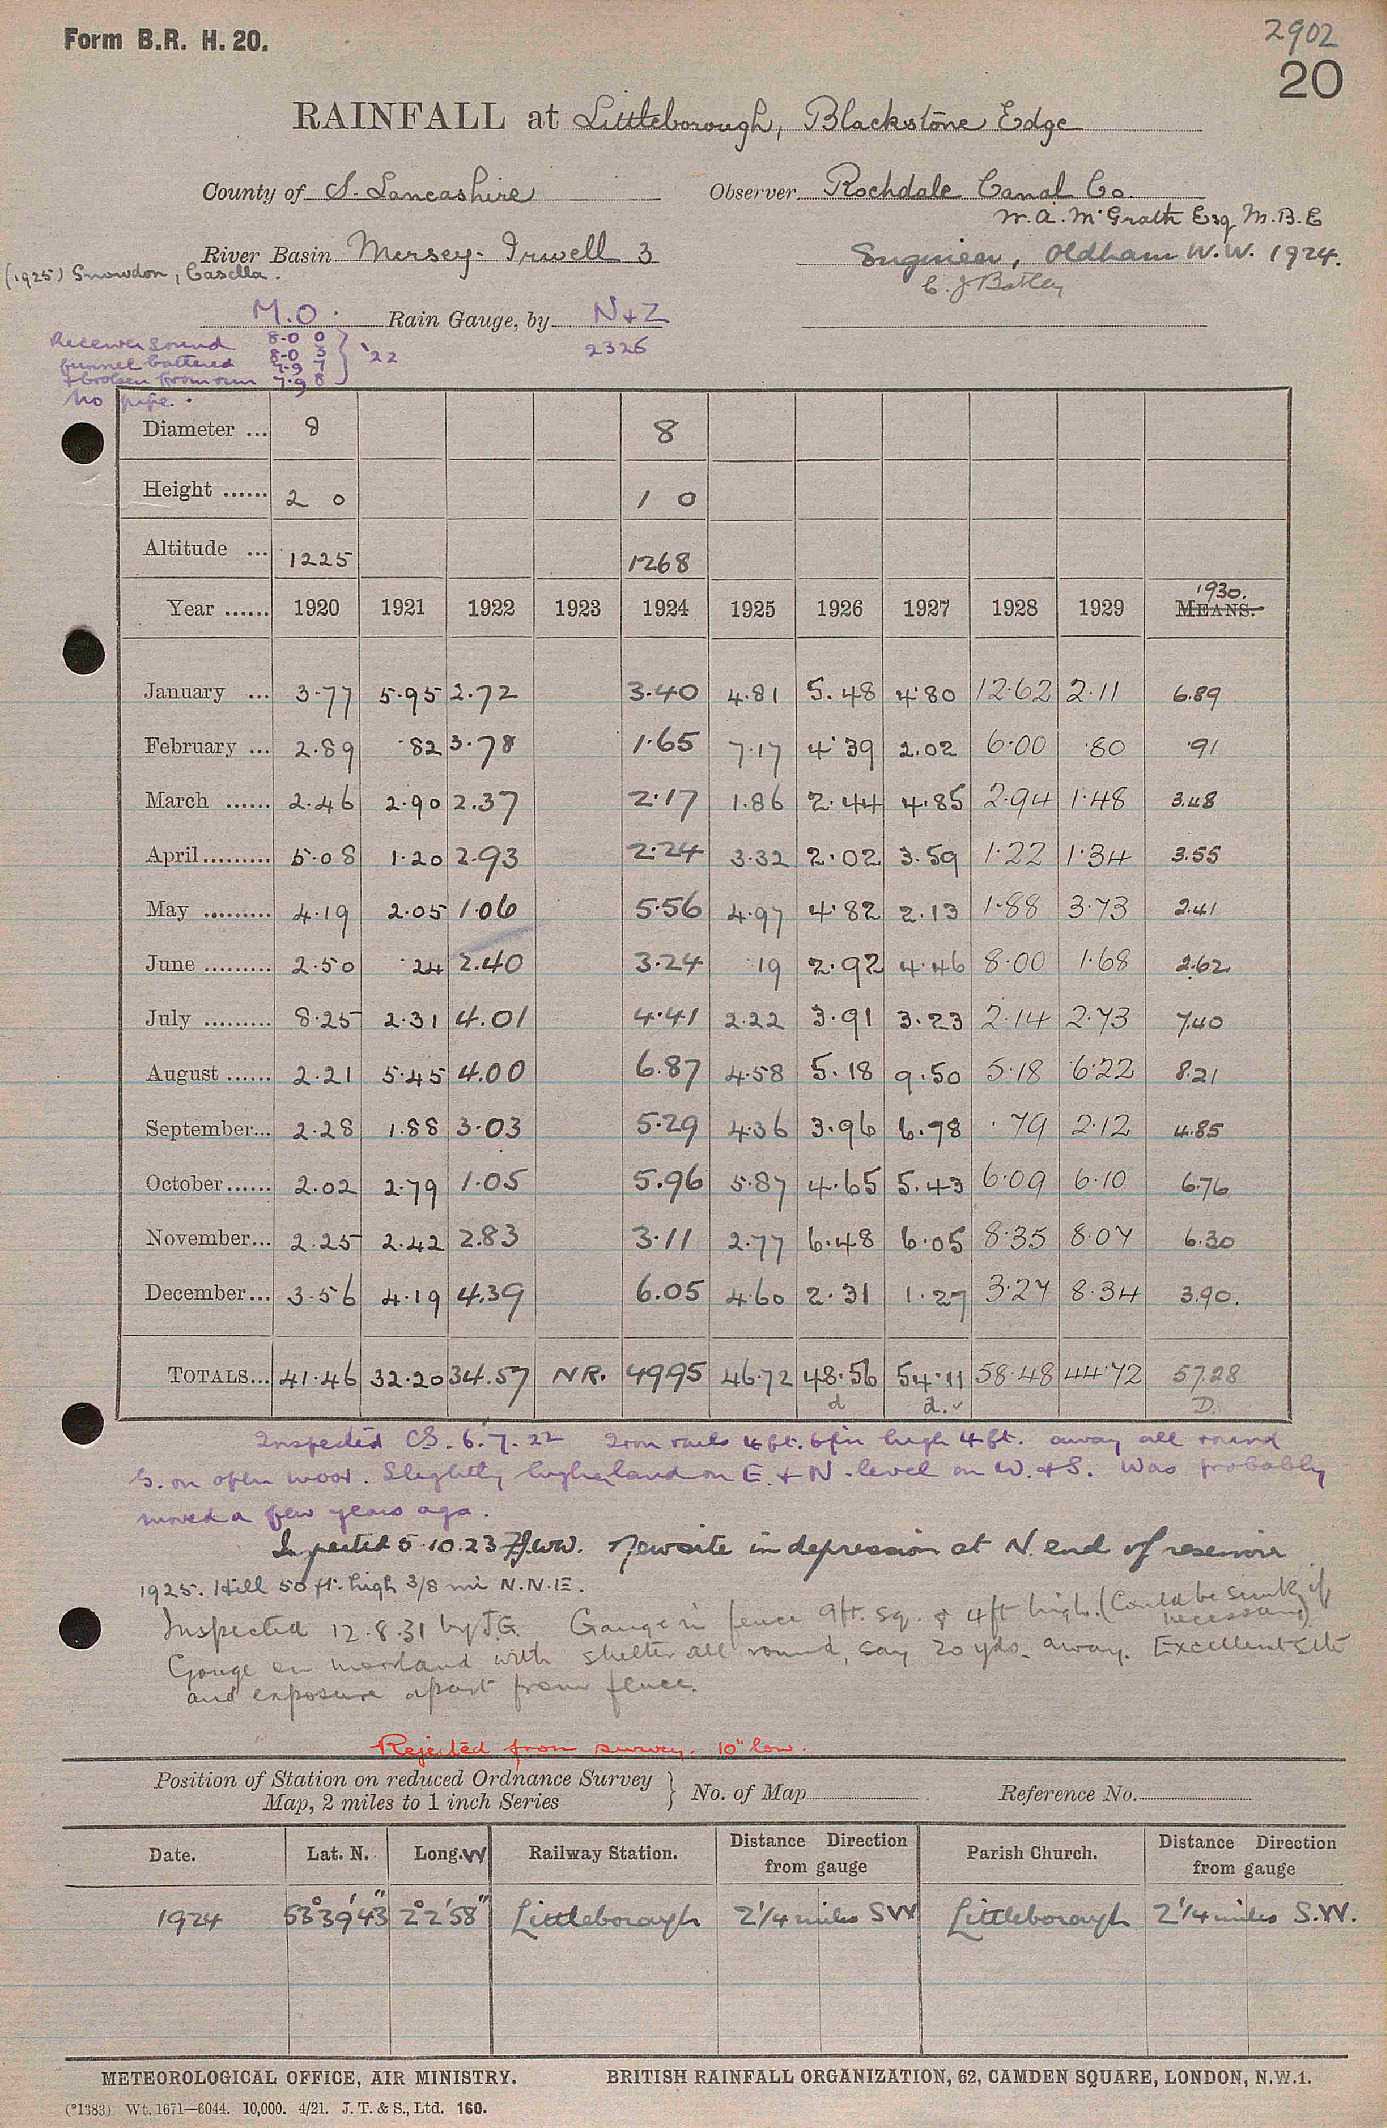 Form B.R. H. 20.
2902
20
RAINFALL at Littleborough, Blackstone Edge
County of S. Lancashire Observer Rochdale Canal Co.
W. A. McGrath Esq M.B.E
River Basin Mersey- Irwell 3 Engineer, Oldham W.W. 1924.
(1925) Snowdon, Casella.
C. J Batley
M.O. Rain Gauge, by N+Z
2326
Receiver sound 8.0 0
funnel battered 8.0 3 '22
+ broken from rim 7.9 7
7.9 8
No pipe.
Diameter ... 8 8
Height ...... 2 0 1 0
Altitude ... 1225 1268
Year ...... 1920 1921 1922 1923 1924 1925 1926 1927 1928 1929 MEANS. 1930.
January ... 3.77 5.95 2.72 3.40 4.81 5.48 4.80 12.62 2.11 6.89
February ... 2.89 .82 3.78 1.65 7.17 4.39 2.02 6.00 .80 .91
March ...... 2.46 2.90 2.37 2.17 1.86 2.44 4.85 2.94 1.48 3.48
April ......... 5.08 1.20 2.93 2.24 3.32 2.02 3.59 1.22 1.34 3.55
May ......... 4.19 2.05 1.06 5.56 4.97 4.82 2.13 1.88 3.73 2.41
June ......... 2.50 .24 2.40 3.24 .19 2.92 4.46 8.00 1.68 2.62
July ......... 8.25 2.31 4.01 4.41 2.22 3.91 3.23 2.14 2.73 7.40
August ...... 2.21 5.45 4.00 6.87 4.58 5.18 9.50 5.18 6.22 8.21
September... 2.28 1.88 3.03 5.29 4.36 3.96 6.78 .79 2.12 4.85
October ...... 2.02 2.79 1.05 5.96 5.87 4.65 5.43 6.09 6.10 6.76
November... 2.25 2.42 2.83 3.11 2.77 6.48 6.05 8.35 8.07 6.30
December... 3.56 4.19 4.39 6.05 4.60 2.31 1.27 3.27 8.34 3.90.
TOTALS... 41.46 32.20 34.57 NR. 49.95 46.72 48.56 54.11 58.48 44.72 57.28
d d. D.
Inspected CS. 6.7.22 Iron rails 4ft. 6in high 4ft. away all round
G. on open moor. Slightly higher land on E. + N. level on W. + S. Was probably
moved a few years ago.
Inspected 5.10.23 New site in depression at N. end of reservoir
1925. Hill 50 ft. high 3/8 mi N.N.E.
Inspected 12.8.31 by J.G. Gauge in fence 9ft. sq. & 4ft high. (Could be sunk if
necessary)
Gauge on moorland with shelter all round, say 20 yds. away. Excellent site
and exposure apart from fence.
Rejected from survey. 10" low.
Position of Station on reduced Ordnance Survey
Map, 2 miles to 1 inch Series } No. of Map Reference No.
Date. Lat. N. Long. W Railway Station. Distance Direction from gauge Parish Church. Distance Direction from gauge
1924 53°39'43" 2°2'58" Littleborough 2 1/4 miles SW Littleborough 2 1/4 miles S.W.
METEOROLOGICAL OFFICE, AIR MINISTRY. BRITISH RAINFALL ORGANIZATION, 62, CAMDEN SQUARE, LONDON, N.W.1.
(*1383) Wt. 1671—6044. 10,000. 4/21. J. T. & S., Ltd. 160.